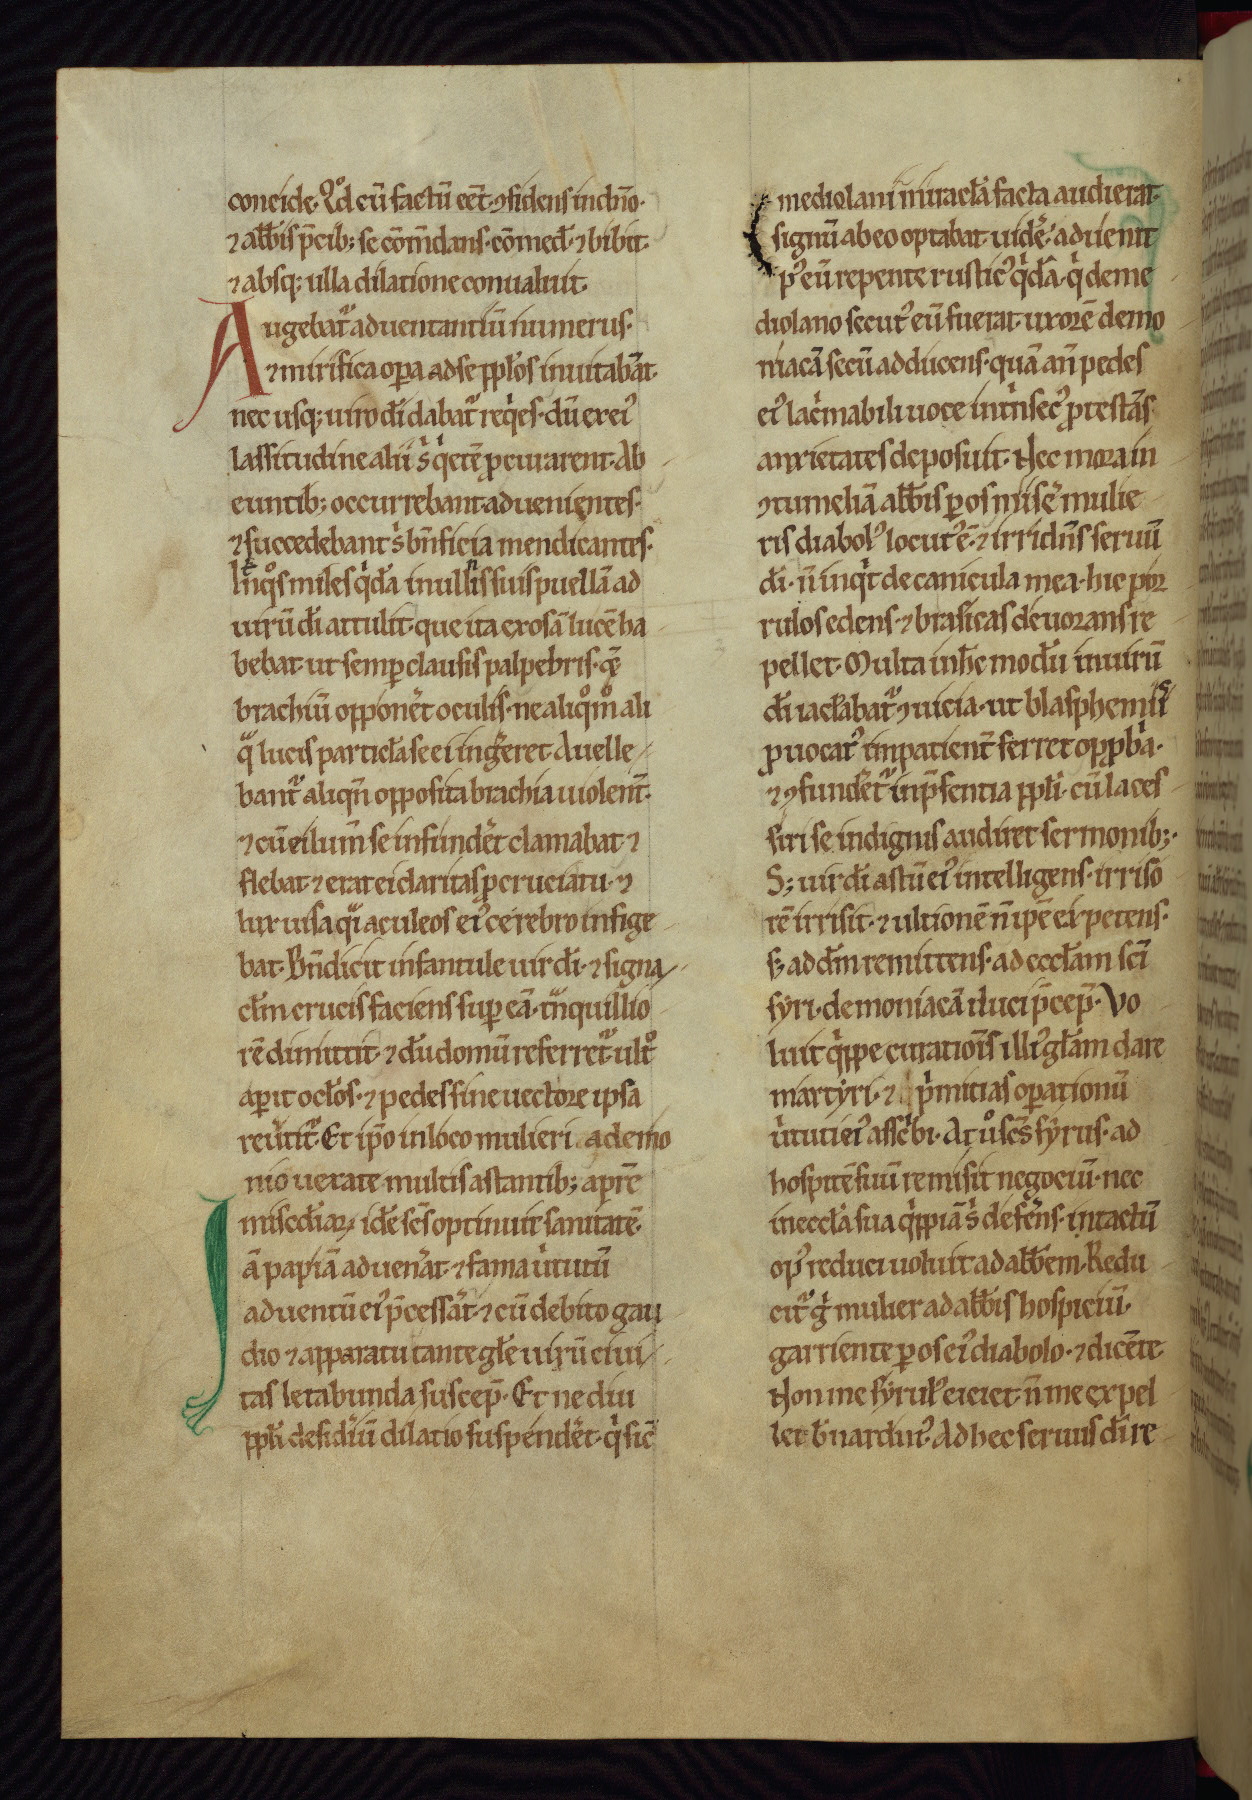 come͛ide. Qd̊ cū factū eēt. ꝯfidens in dn̄o.
⁊ abb̄is p̄cib; se cōm̄dans. cōmed̄. ⁊ bibit
⁊ absq; ulla dilatione conualuit.
Augebat᷑ aduentantiū numerus.
⁊ mirifica oꝑa ad se ppl̄os inuitabāt.
nec usq; uiro dī dabat᷑ reqͥes. dū ex eiꝰ
lassitudine alii sͥ qͥetē ꝓcurarent. Ab
euntib; occurrebant aduenientes.
⁊ succedebant sͥ bn̄ficia mendicantes.
Int̄ qͦs miles qͥdā in ulnis suis puellā ad
uirū dī attulit. que ita exosā lucē ha
bebat. ut semꝑ clausis palpebris. qͣ
brachiū opponēt oculis. ne aliqͦ mͦ ali
qͣ lucis particl̄a se ei ingēret. Auelle
bant᷑ aliqn̄ opposita brachia uiolent̄.
⁊ cū ei lum̄ se infundēt clamabat ⁊
flebat. ⁊ erat ei claritas ꝓ cruciatu. ⁊
lux uisa qͣi aculeos eiꝰ cerebro infige
bat. Bn̄dicit infantule uir dī. ⁊ signa
cl̄m crucis faciens suꝑ eā. tͣnquillio
rē dimittit. ⁊ dū domū referret᷑ ultͦ
aꝑit ocl̄os. ⁊ pedes sine uectore ipsa
reūtit᷑. Et ip̄o in loco mulieri a demo
nio uexate multis astantib; a pr̄e
misc̄diaꝝ idē sc̄s optinuit sanitatē.
Jā papiā aduenāt. ⁊ fama uͥtutū
aduentū eiꝰ p̄cessāt. ⁊ cū debito gau
dio ⁊ apparatu tante gl̄e uirū ciui
tas letabunda suscep̄. Et ne diu
ppl̄i desid̄iū dilatio suspendēt. qͥ sic̄
mediolani miracl̄a facta audierat.
signū ab eo optabat uidē. aduenit
pꝰ eū repente rusticꝰ qͥdā. qͥ de me
diolano secutꝰ eū fuerat. uxorē demo
niacā secū adducens. quā an̄ pedes
eiꝰ lacͥmabili uoce intͥnsecꝰ ꝓtestās
anxietates deposuit. Nec mora in
ꝯtumeliā abb̄is ꝑ os misē mulie
ris diabolꝰ locutꝰ ē. ⁊ irridn̄s seruū
dī. n̄ inqͥt de canicula mea. hic por
rulos edens. ⁊ brasicas deuorans re
pellet. Multa in hc̄ modū in uirū
dī iactabat᷑ ꝯuicia. ut blasphemiis
ꝓuocatꝰ impatient̄ ferret opꝓbͥa.
⁊ ꝯfundēt᷑ in p̄sentia ppl̄i. cū laces
siri se indignis audiret sermonib;.
S; uir dī astū eiꝰ intelligens. irriso
rē irrisit. ⁊ ultionē n̄ ip̄e expetens.
s; ad dm̄ remittens. ad eccl̄am sc̄i
syri. demoniacā duci p̄cep̄. Vo
luit qͥppe curatiōis illiꝰ gl̄am dare
martyri. ⁊ pͥmitias oꝑationū
uͥtuti eiꝰ ascͥbi. At uͦ sc̄s syrus. ad
hospitē suū remisit negociū. nec
in eccl̄a sua qͥppiā sͥ defēns. intactū
opꝰ reduci uoluit ad abb̄em. Redu
cit᷑ gͥ mulier ad abb̄is hospiciū.
garriente ꝑ os eiꝰ diabolo. ⁊ dicēte
Non me syrul̄ eiciet. n̄ me expel
let b̄nardinꝰ. Ad hec seruus dī re